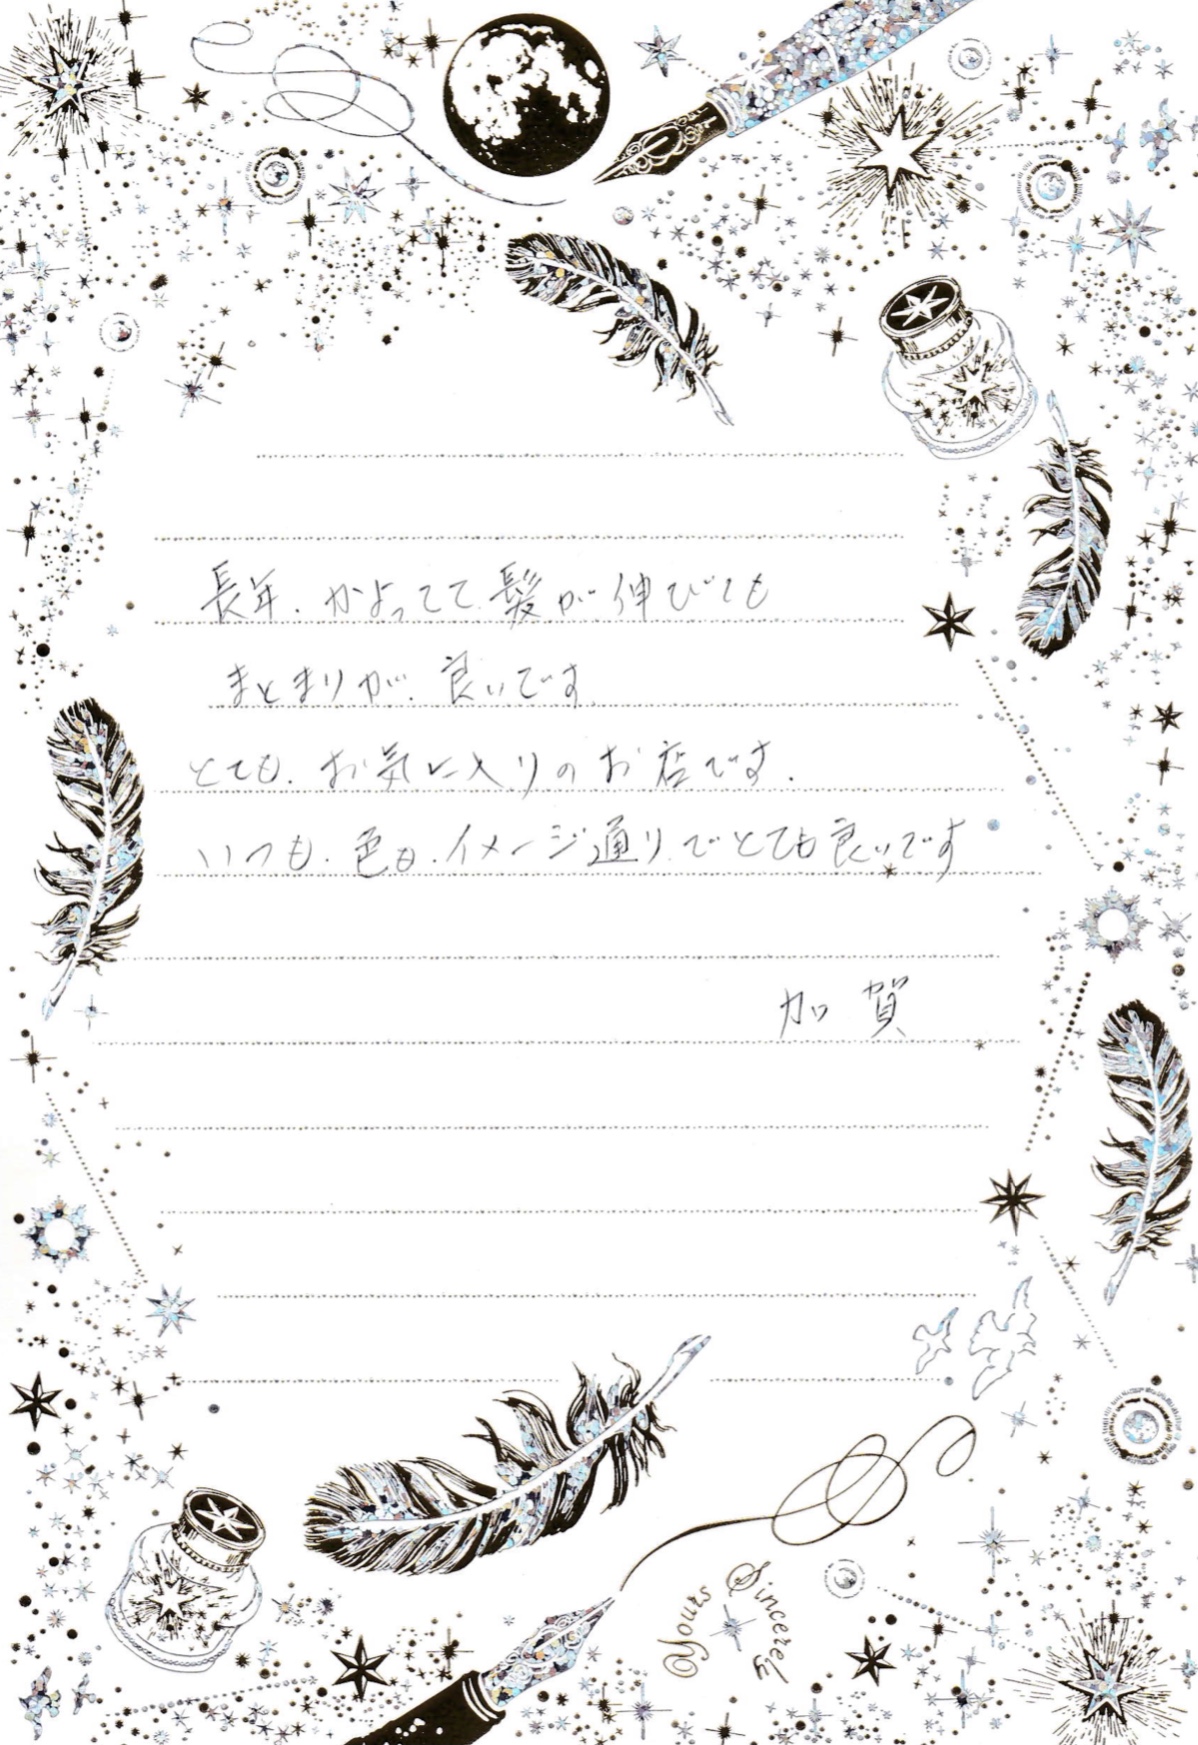 長年、かよってて、髪が伸びても
まとまりが、良いです。
とても、お気に入りのお店です。
いつも、色も、イメージ通りでとても良いです
加賀
Yours Sincerely